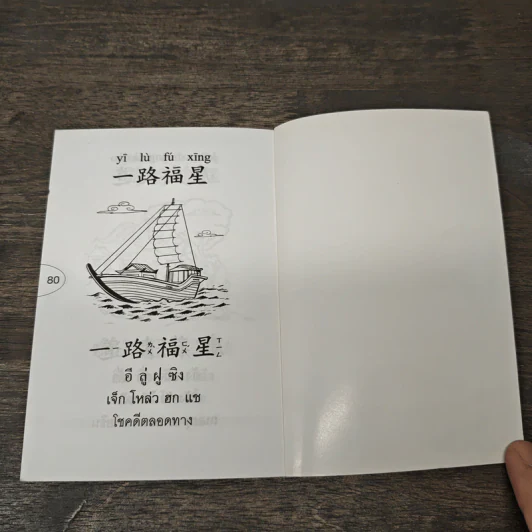 yī lù fú xīng
一路福星
80
一路ㄌㄨˋ福ㄈㄨˊ星ㄒㄧㄥ
อี ลู่ ฝู ซิง
เจ็ก โหล่ว ฮก แช
โชคดีตลอดทาง